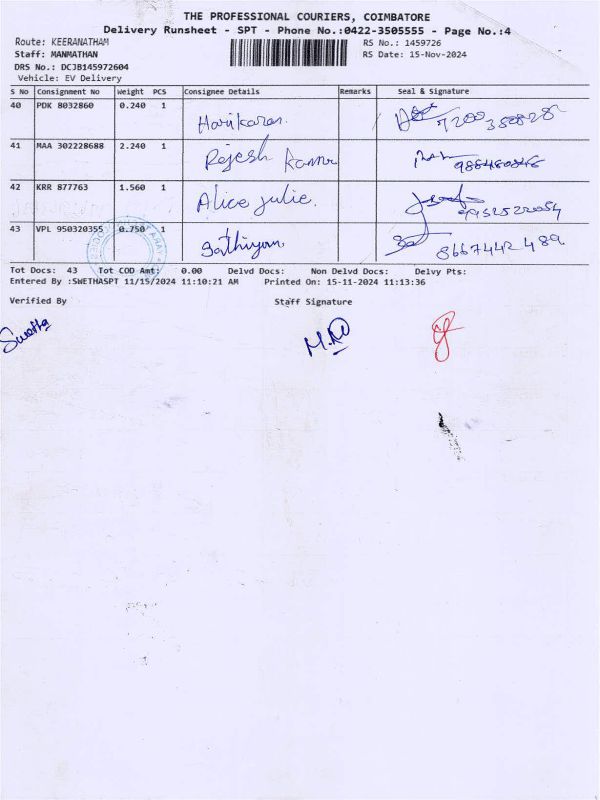 THE PROFESSIONAL COURIERS, COIMBATORE
Delivery Runsheet - SPT - Phone No.:0422-3505555 - Page No.:4
Route: KEERANATHAM RS No.: 1459726
Staff: MANMATHAN RS Date: 15-Nov-2024
DRS No.: DCJB145972604
Vehicle: EV Delivery
S No Consignment No Weight PCS Consignee Details Remarks Seal & Signature
40 PDK 8032860 0.240 1 Harikaran. 7200350828
41 MAA 302228688 2.240 1 Rajesh Kanna
42 KRR 877763 1.560 1 Alice julie. 9952522054
43 VPL 950320355 0.750 1 Sathiyan 8667442489
Tot Docs: 43 Tot COD Amt: 0.00 Delvd Docs: Non Delvd Docs: Delvy Pts:
Entered By :SWETHASPT 11/15/2024 11:10:21 AM Printed On: 15-11-2024 11:13:36
Verified By Staff Signature
Swetha